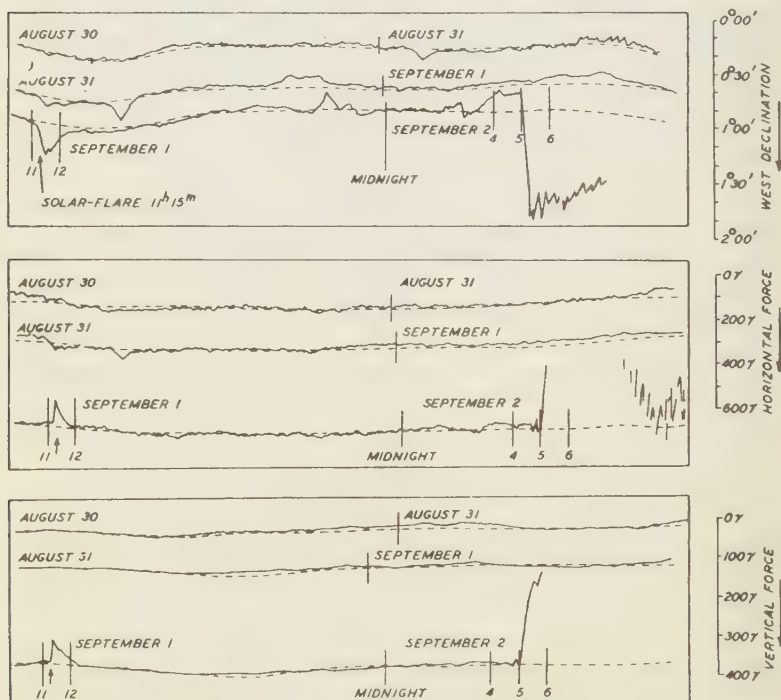 AUGUST 30
AUGUST 31
AUGUST 31
SEPTEMBER 1
SEPTEMBER 2
4 5 6
11 12
SEPTEMBER 1
MIDNIGHT
SOLAR-FLARE 11h 15m
0°00'
0°30'
1°00'
1°30'
2°00'
WEST DECLINATION
AUGUST 30
AUGUST 31
AUGUST 31
SEPTEMBER 1
SEPTEMBER 1
SEPTEMBER 2
11 12
MIDNIGHT
4 5 6
0γ
200γ
400γ
600γ
HORIZONTAL FORCE
AUGUST 30
AUGUST 31
AUGUST 31
SEPTEMBER 1
SEPTEMBER 1
SEPTEMBER 2
11 12
MIDNIGHT
4 5 6
0γ
100γ
200γ
300γ
400γ
VERTICAL FORCE